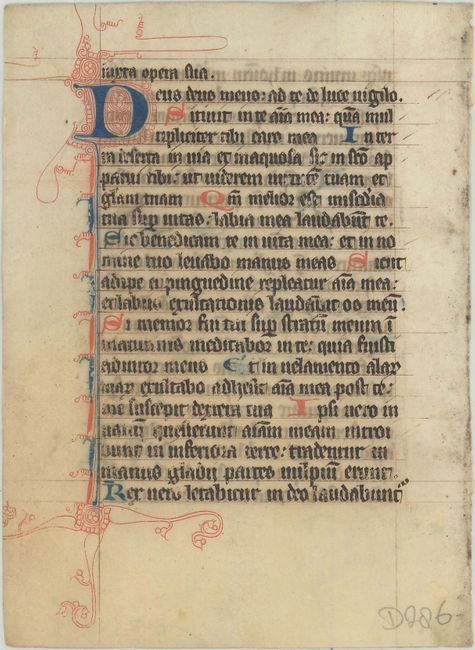 iuxta opera sua.
Deus deus meus: ad te de luce vigilo.
Sitiuit in te aīa mea: quā mul
tipliciter tibi caro mea In ter
ra deserta in uia et inaquosa sic in sc̄o ap
parui tibi: ut uiderem uirtutē tuam et
gl̄am tuam Qm̄ melior est mis̄cdia
tua sup̄ uitas: labia mea laudabūt te.
Sic benedicam te in uita mea: et in no
mine tuo leuabo manus meas Sicut
adipe et pinguedine repleatur aīa mea:
et labiis exultationis laudabit os meū.
Si memor fui tui sup̄ stratū meum ī
matutinis meditabor in te: quia fuisti
adiutor meus Et in uelamento alar
tuar exultabo adhesit aīa mea post te:
me suscepit dextera tua Ipsi uero in
uanū quesierunt aīam meam introi
bunt in inferiora terre: tradentur in
manus gladii partes uulpiū erunt.
Rex uero letabitur in deo laudabunt
D286